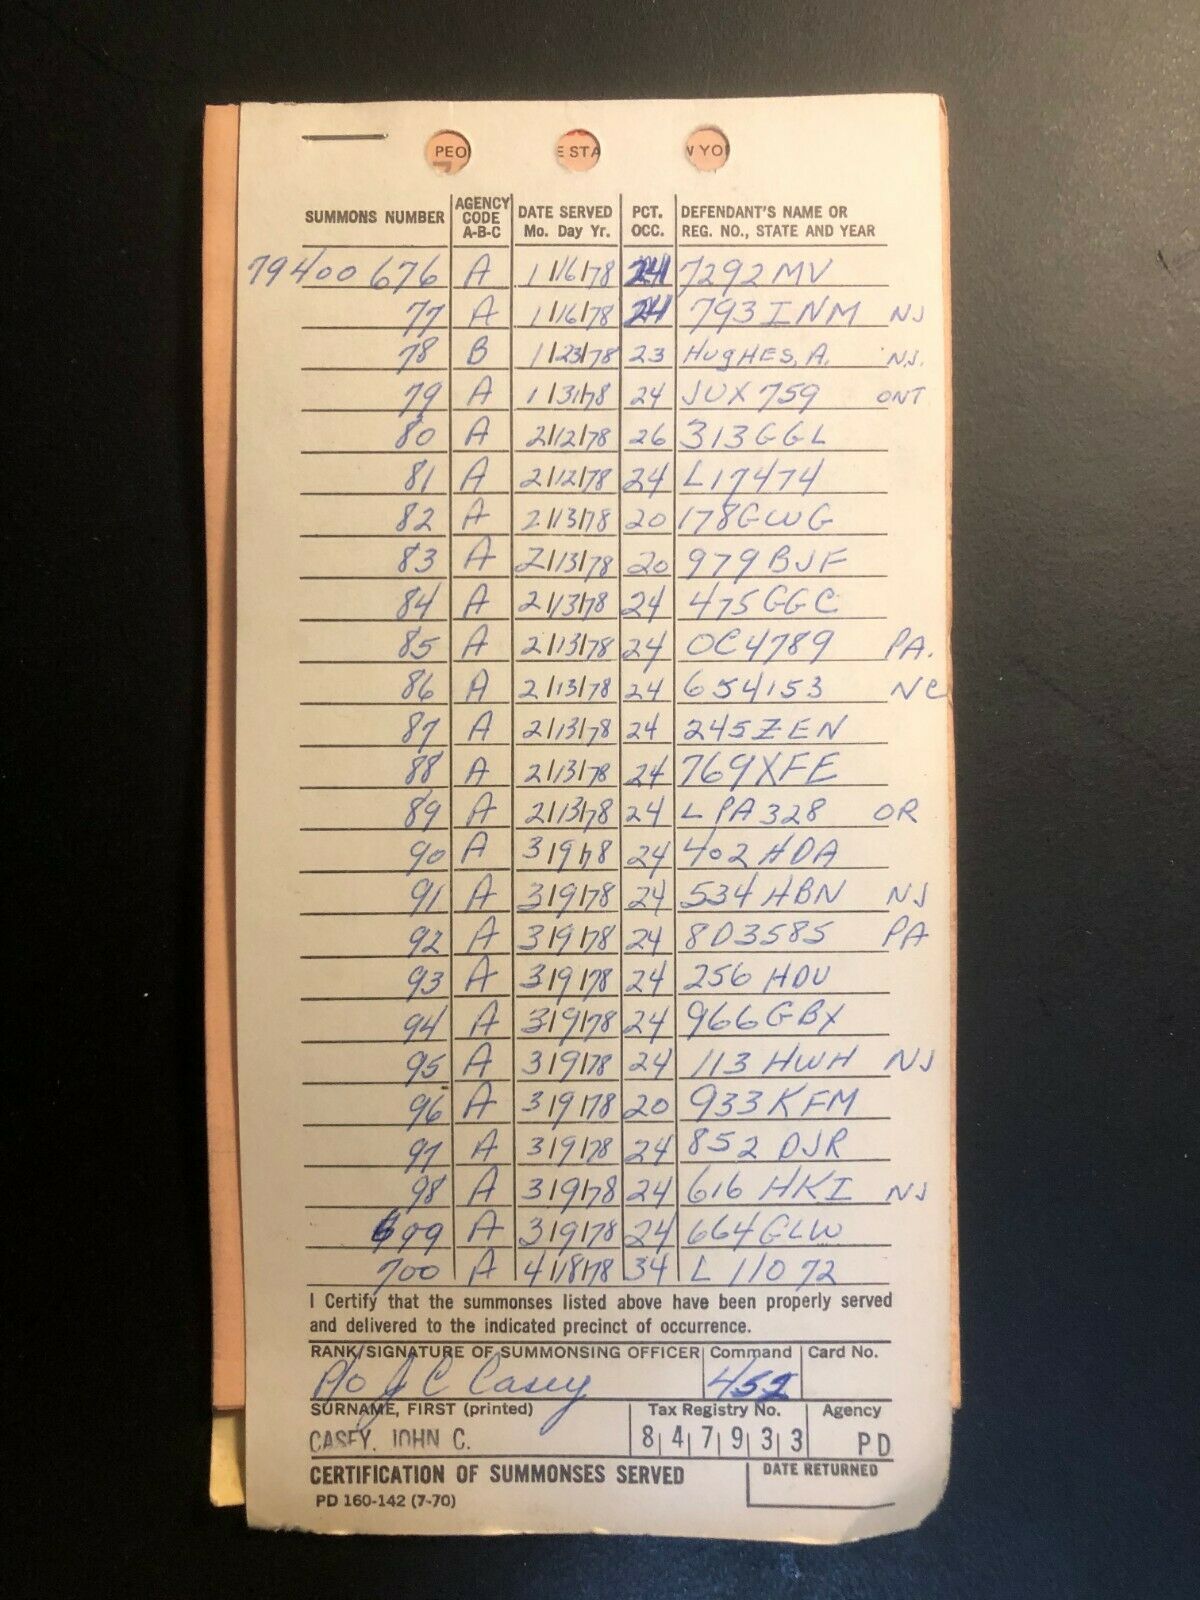 PEO E STA W YOR
SUMMONS NUMBER AGENCY CODE A-B-C DATE SERVED Mo. Day Yr. PCT. OCC. DEFENDANT'S NAME OR REG. NO., STATE AND YEAR
79400676 A 1/16/78 24 7292MV
77 A 1/16/78 24 793INM NJ
78 B 1/23/78 23 HugHES, A. N.J.
79 A 1/31/78 24 JUX759 ONT
80 A 2/12/78 26 313GGL
81 A 2/12/78 24 L17474
82 A 2/13/78 20 178GWG
83 A 2/13/78 20 979BJF
84 A 2/13/78 24 475GGC
85 A 2/13/78 24 OC4789 PA.
86 A 2/13/78 24 654153 NC
87 A 2/13/78 24 245ZEN
88 A 2/13/78 24 769XFE
89 A 2/13/78 24 LPA328 OR
90 A 3/9/78 24 402HDA
91 A 3/9/78 24 534HBN NJ
92 A 3/9/78 24 8D3585 PA
93 A 3/9/78 24 256HDU
94 A 3/9/78 24 966GBX
95 A 3/9/78 24 113HWH NJ
96 A 3/9/78 20 933KFM
97 A 3/9/78 24 852DJR
98 A 3/9/78 24 616HKI NJ
699 A 3/9/78 24 664GLW
700 A 4/18/78 34 L11072
I Certify that the summonses listed above have been properly served
and delivered to the indicated precinct of occurrence.
RANK/SIGNATURE OF SUMMONSING OFFICER Command Card No.
P/O J C Casey 452
SURNAME, FIRST (printed) Tax Registry No. Agency
CASEY, JOHN C. 847933 PD
CERTIFICATION OF SUMMONSES SERVED DATE RETURNED
PD 160-142 (7-70)